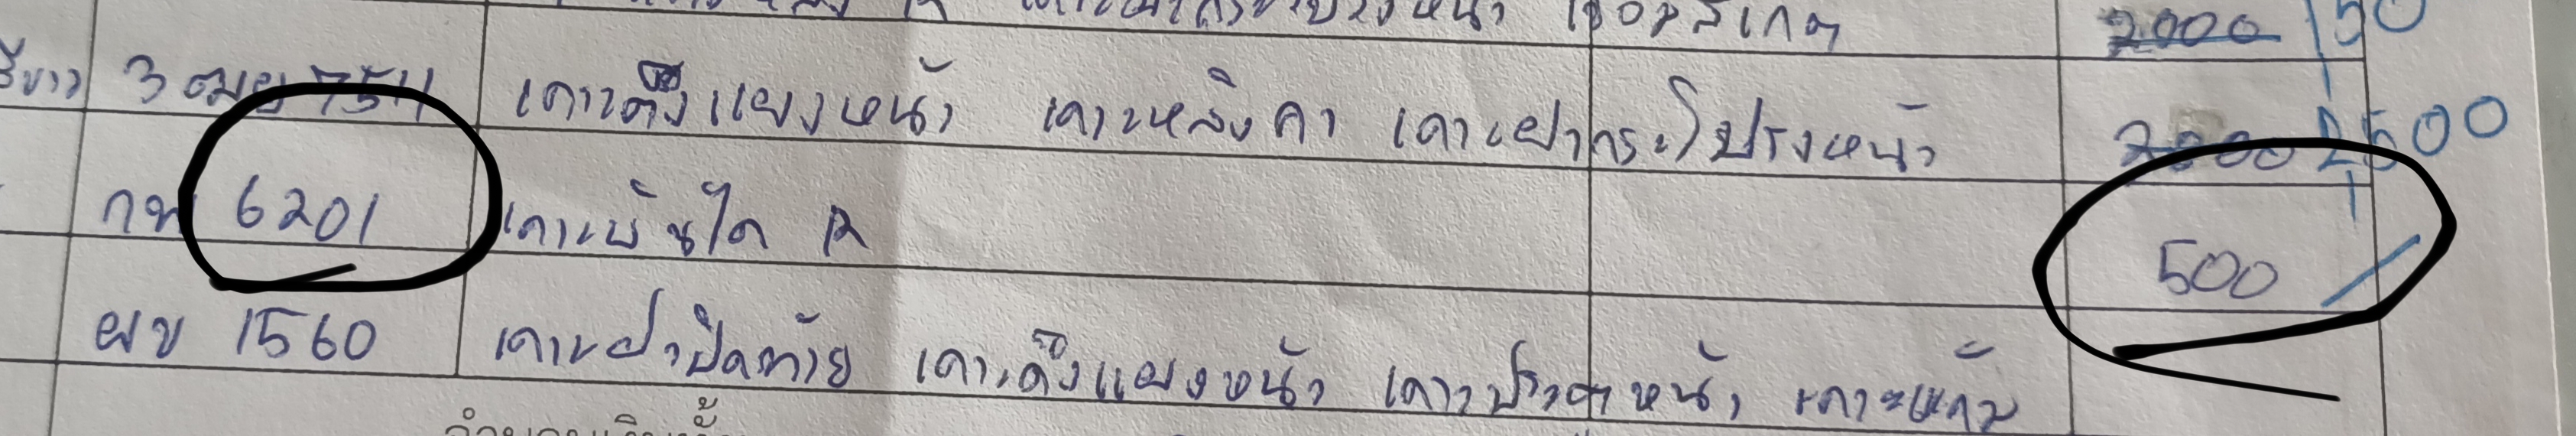 2000 150
สีขาว 3 ฒย 7511 เคาะดึงแผงหน้า เคาะหลังคา เคาะฝากระโปรงหน้า 2000 2500
กพ 6201 เคาะบันได R 500
ผข 1560 เคาะฝาปิดท้าย เคาะดึงแผงหน้า เคาะประตูหน้า เคาะแก้ม